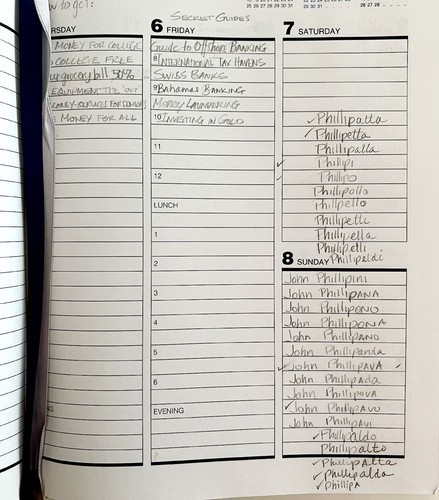 to get:
SECRET GUIDES
RSDAY
MONEY FOR COLLEGE
COLLEGE FREE
grocery bill 50%
EQUIPMENT
MONEY FOR ALL
6 FRIDAY
Guide to Offshore BANKING
8 INTERNATIONAL TAX HAVENS
SWISS BANKS
9 Bahamas BANKING
MONEY LAUNDERING
10 INVESTING IN GOLD
11
12
LUNCH
1
2
3
4
5
6
EVENING
7 SATURDAY
Phillipatta
Phillipetta
Phillipalla
Phillipi
Phillipo
Phillipollo
Phillpello
Phillipetti
Phillipella
Phillipelli
8 SUNDAY Phillipaldi
John Phillipini
John PhillipANA
John PhillipONO
John PhillipONA
John PhillipANO
John Phillipanda
John PhillipAVA
John Phillipada
John PhillipOVA
John PhillipAVO
John PhillipAVI
Phillipaldo
Phillipalto
Phillipalta
Phillipalda
Phillipa